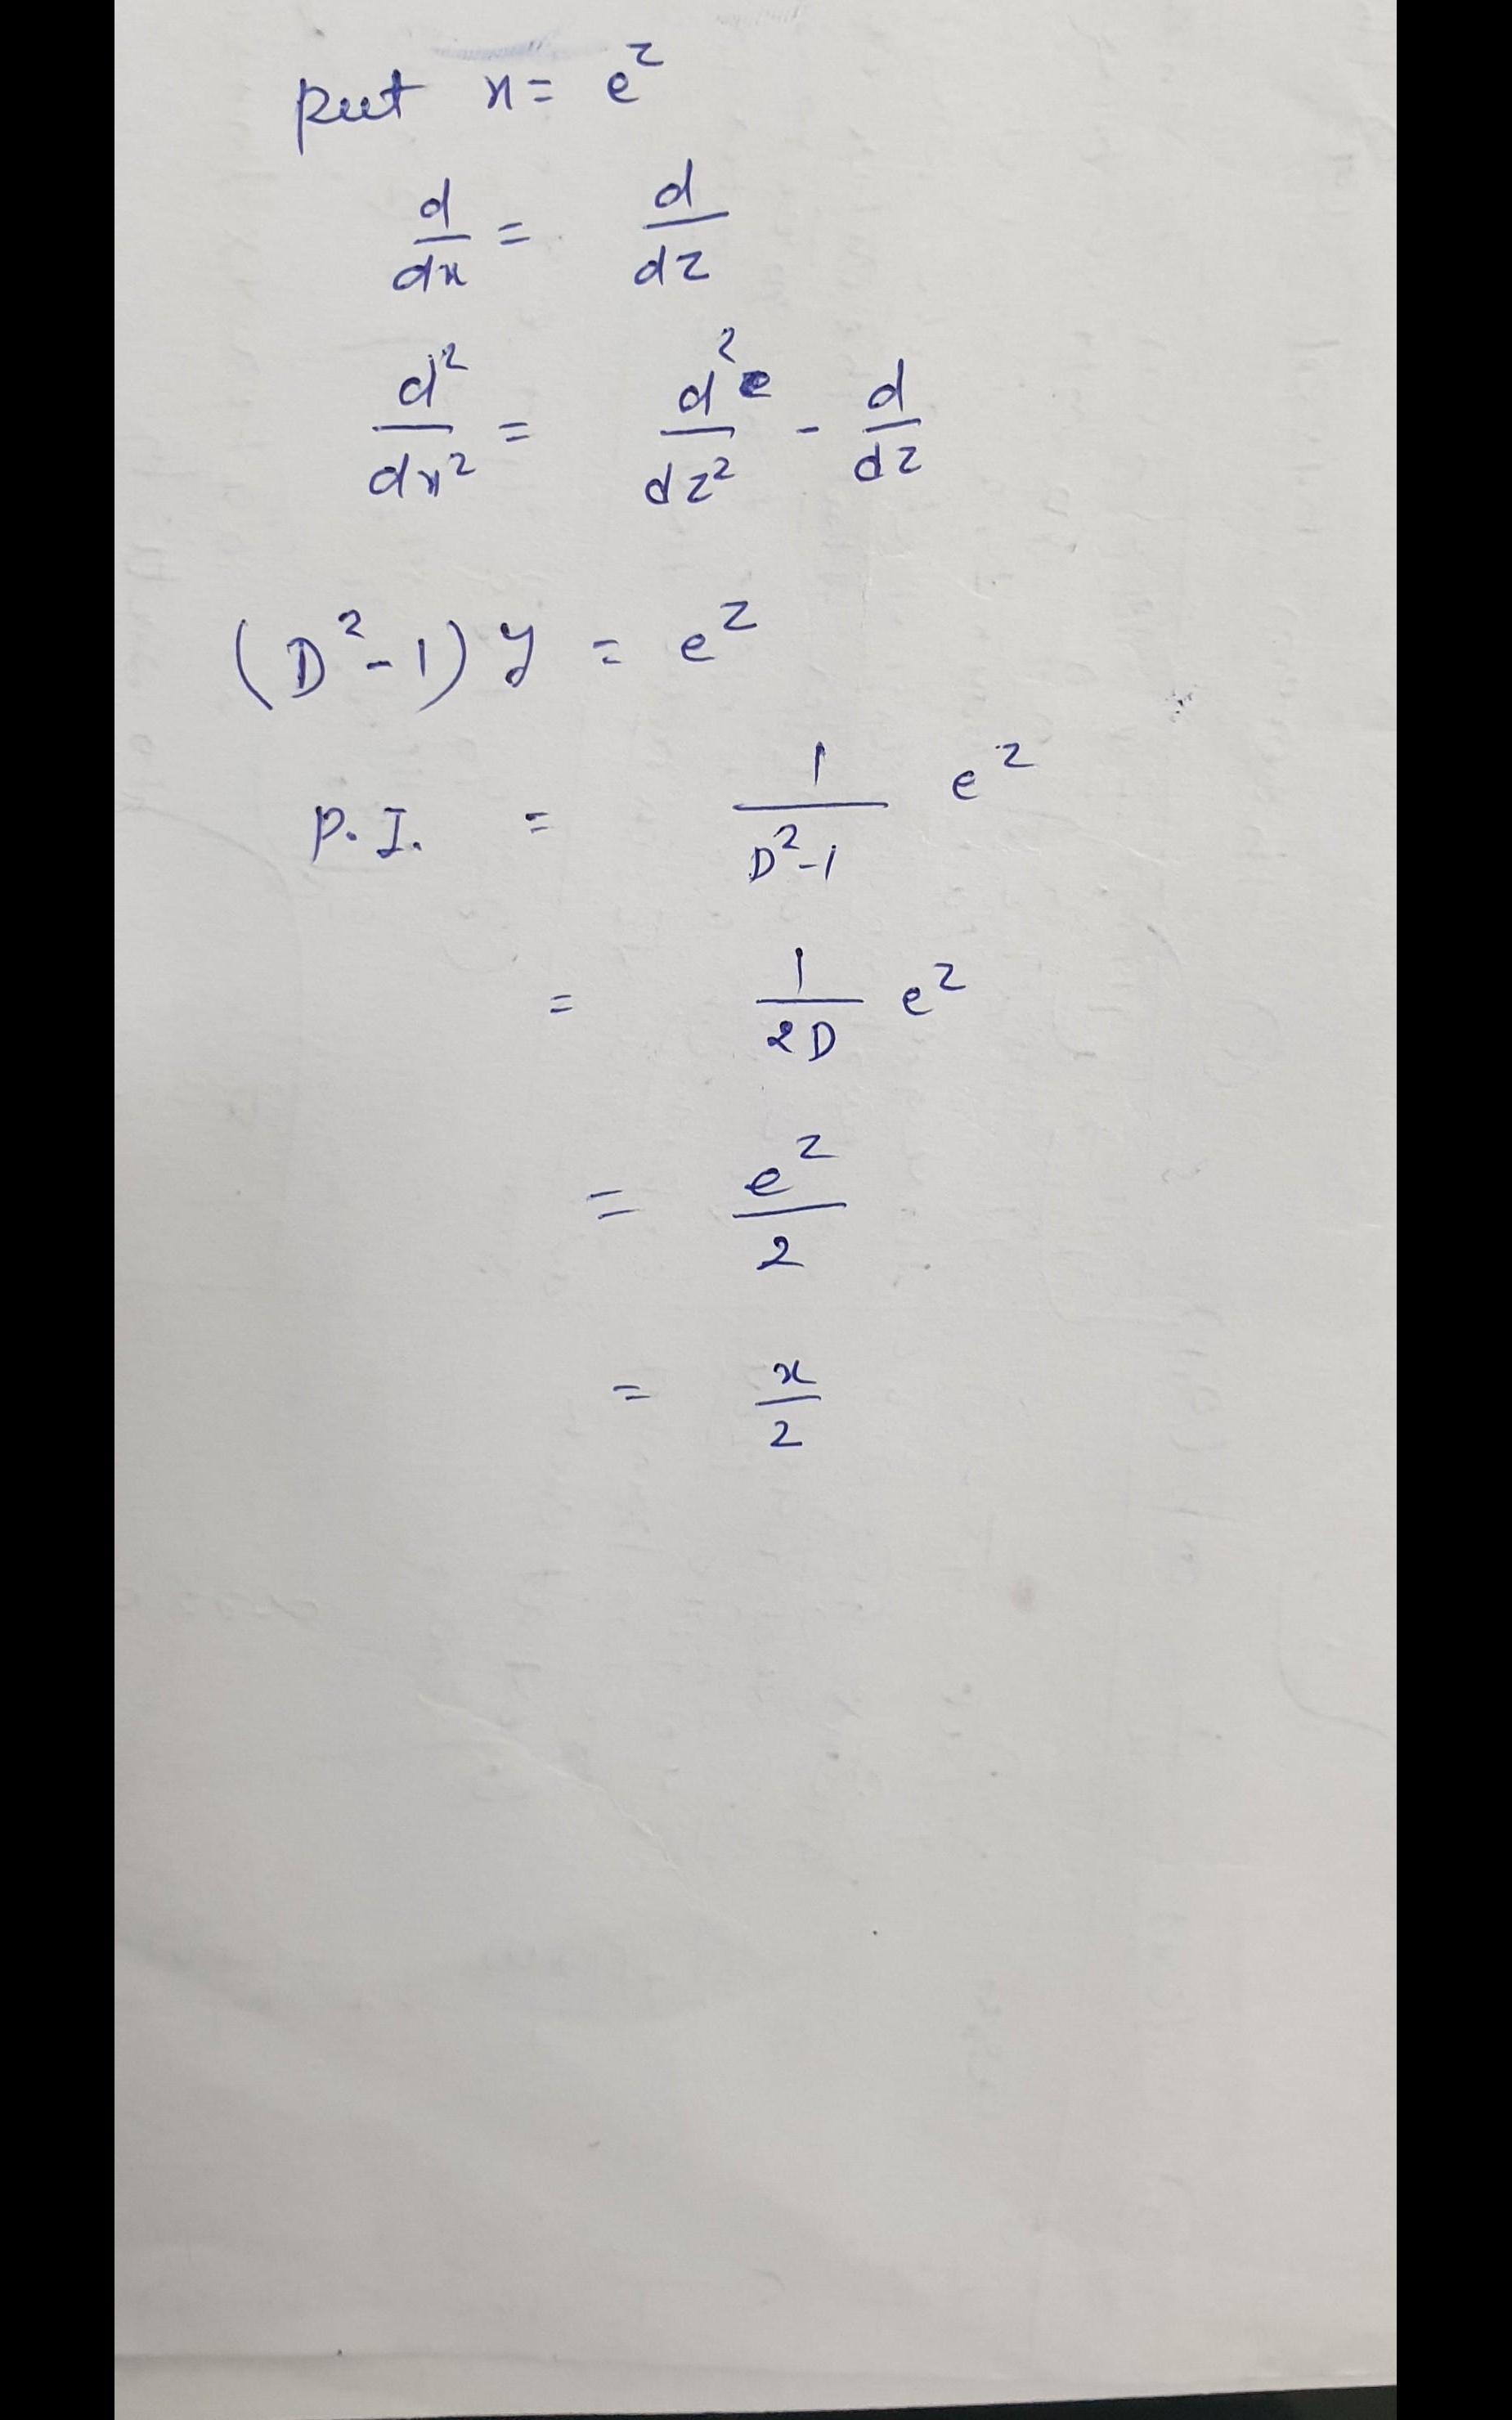 put x = e^z
d/dx = d/dz
d²/dx² = d²/dz² - d/dz
(D²-1) y = e^z
P.I. = 1/(D²-1) e^z
= 1/2D e^z
= e^z/2
= x/2